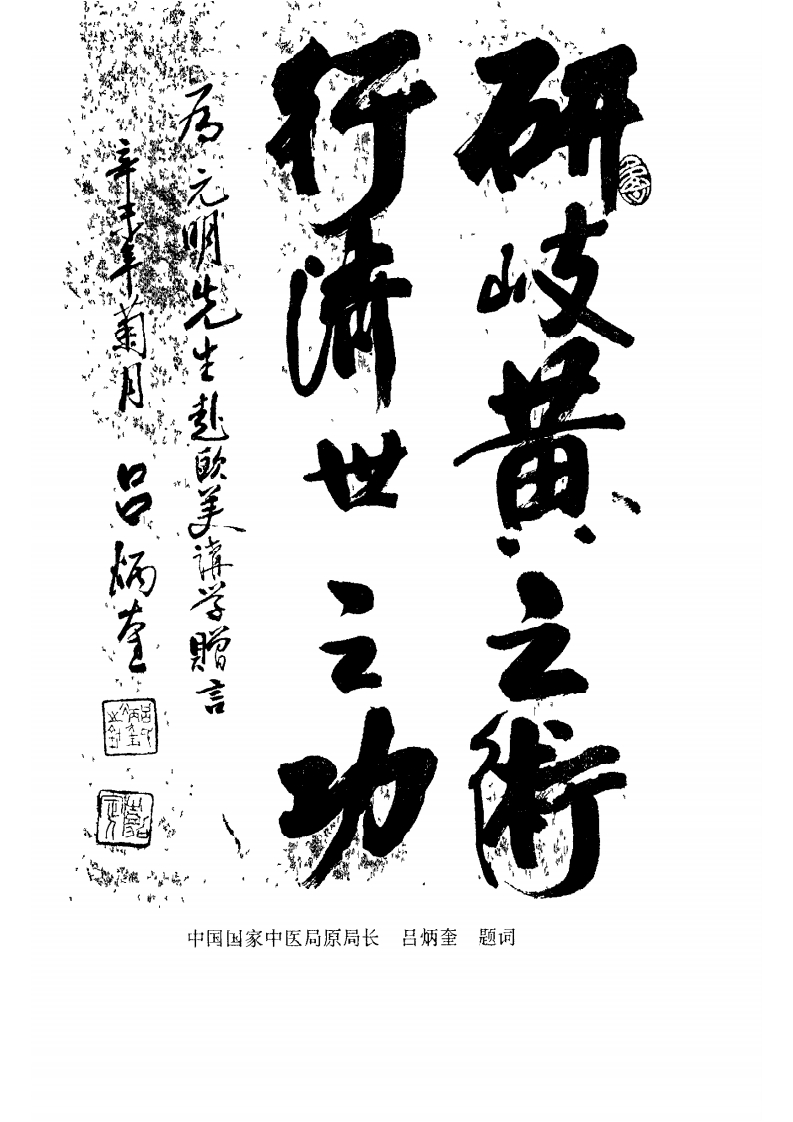 研岐黄之術
行濟世之功
为元明先生赴欧美講学贈言
辛未年菊月
吕炳奎
中国国家中医局原局长 吕炳奎 题词